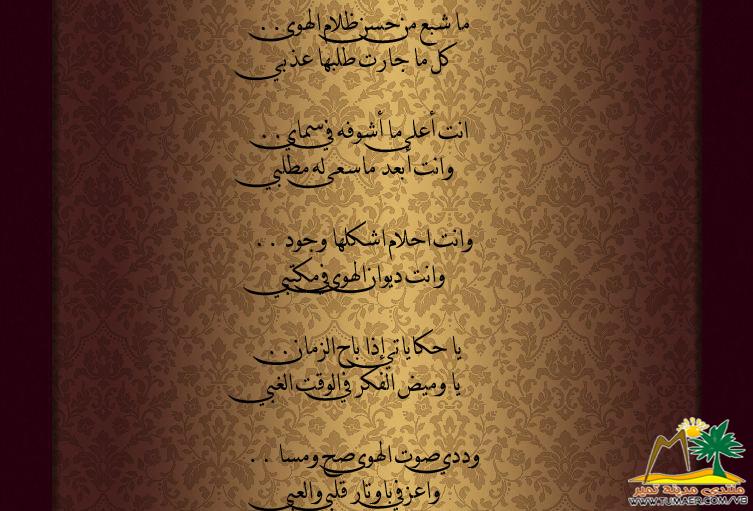 ما شبع من حسن ظلام الهوى . .
كل ما جارت طلبها عذبي
انت أعلى ما أشوفه في سماي . .
وانت أبعد ما سعى له مطلبي
وانت احلام اشكلها وجود . .
وانت ديوان الهوى في مكتبي
يا حكاياتي إذا باح الزمان . .
يا وميض الفكر في الوقت الغبي
وددي صوت الهوى صبح ومسا . .
واعزفي باوتار قلبي والعبي
منتدى مدينة تمير
WWW.TUMAER.COM/VB